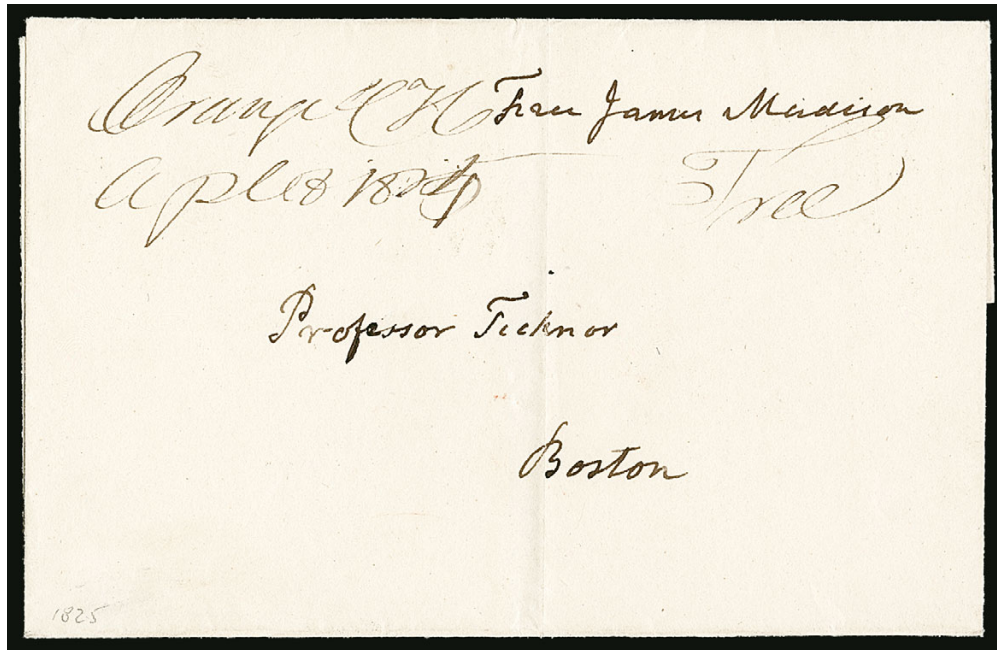 Orange CH Free James Madison
Apl 8 1825 Free
Professor Ticknor
Boston
1825